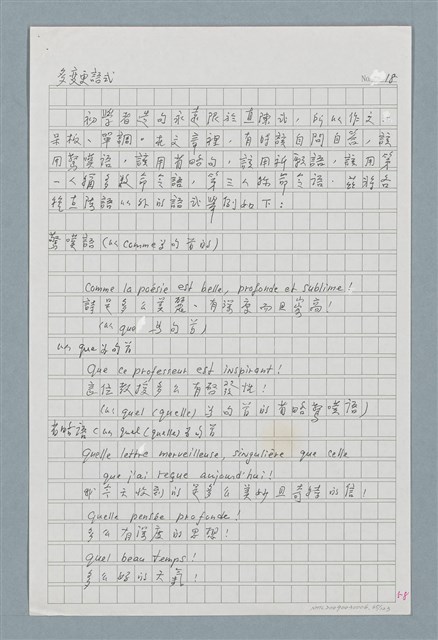 多變更語式
No. 18
初學者造句永遠限於直陳式，所以作文
呆板、單調。在文章裡，有時該自問自答，該
用驚嘆語，該用省略句，該用祈願語，該用第
一人稱多數命令語，第三人稱命令語。茲將各
種直陳語以外的語式舉例如下：
驚嘆語(以comme為句首的)
Comme la poésie est belle, profonde et sublime!
詩是多麼美麗、有深度而且崇高！
(以que 為句首)
以que為句首
Que ce professeur est inspirant!
這位教授多麼有啟發性！
(以quel(quelle)為句首的省略驚嘆語)
省略語(以quel(quelle)為句首
Quelle lettre merveilleuse, singulière que celle
que j'ai reçue aujourd'hui!
我今天收到的是多麼美妙且奇特的信！
Quelle pensée profonde!
多麼有深度的思想！
Quel beau temps!
多麼好的天氣！
5-8